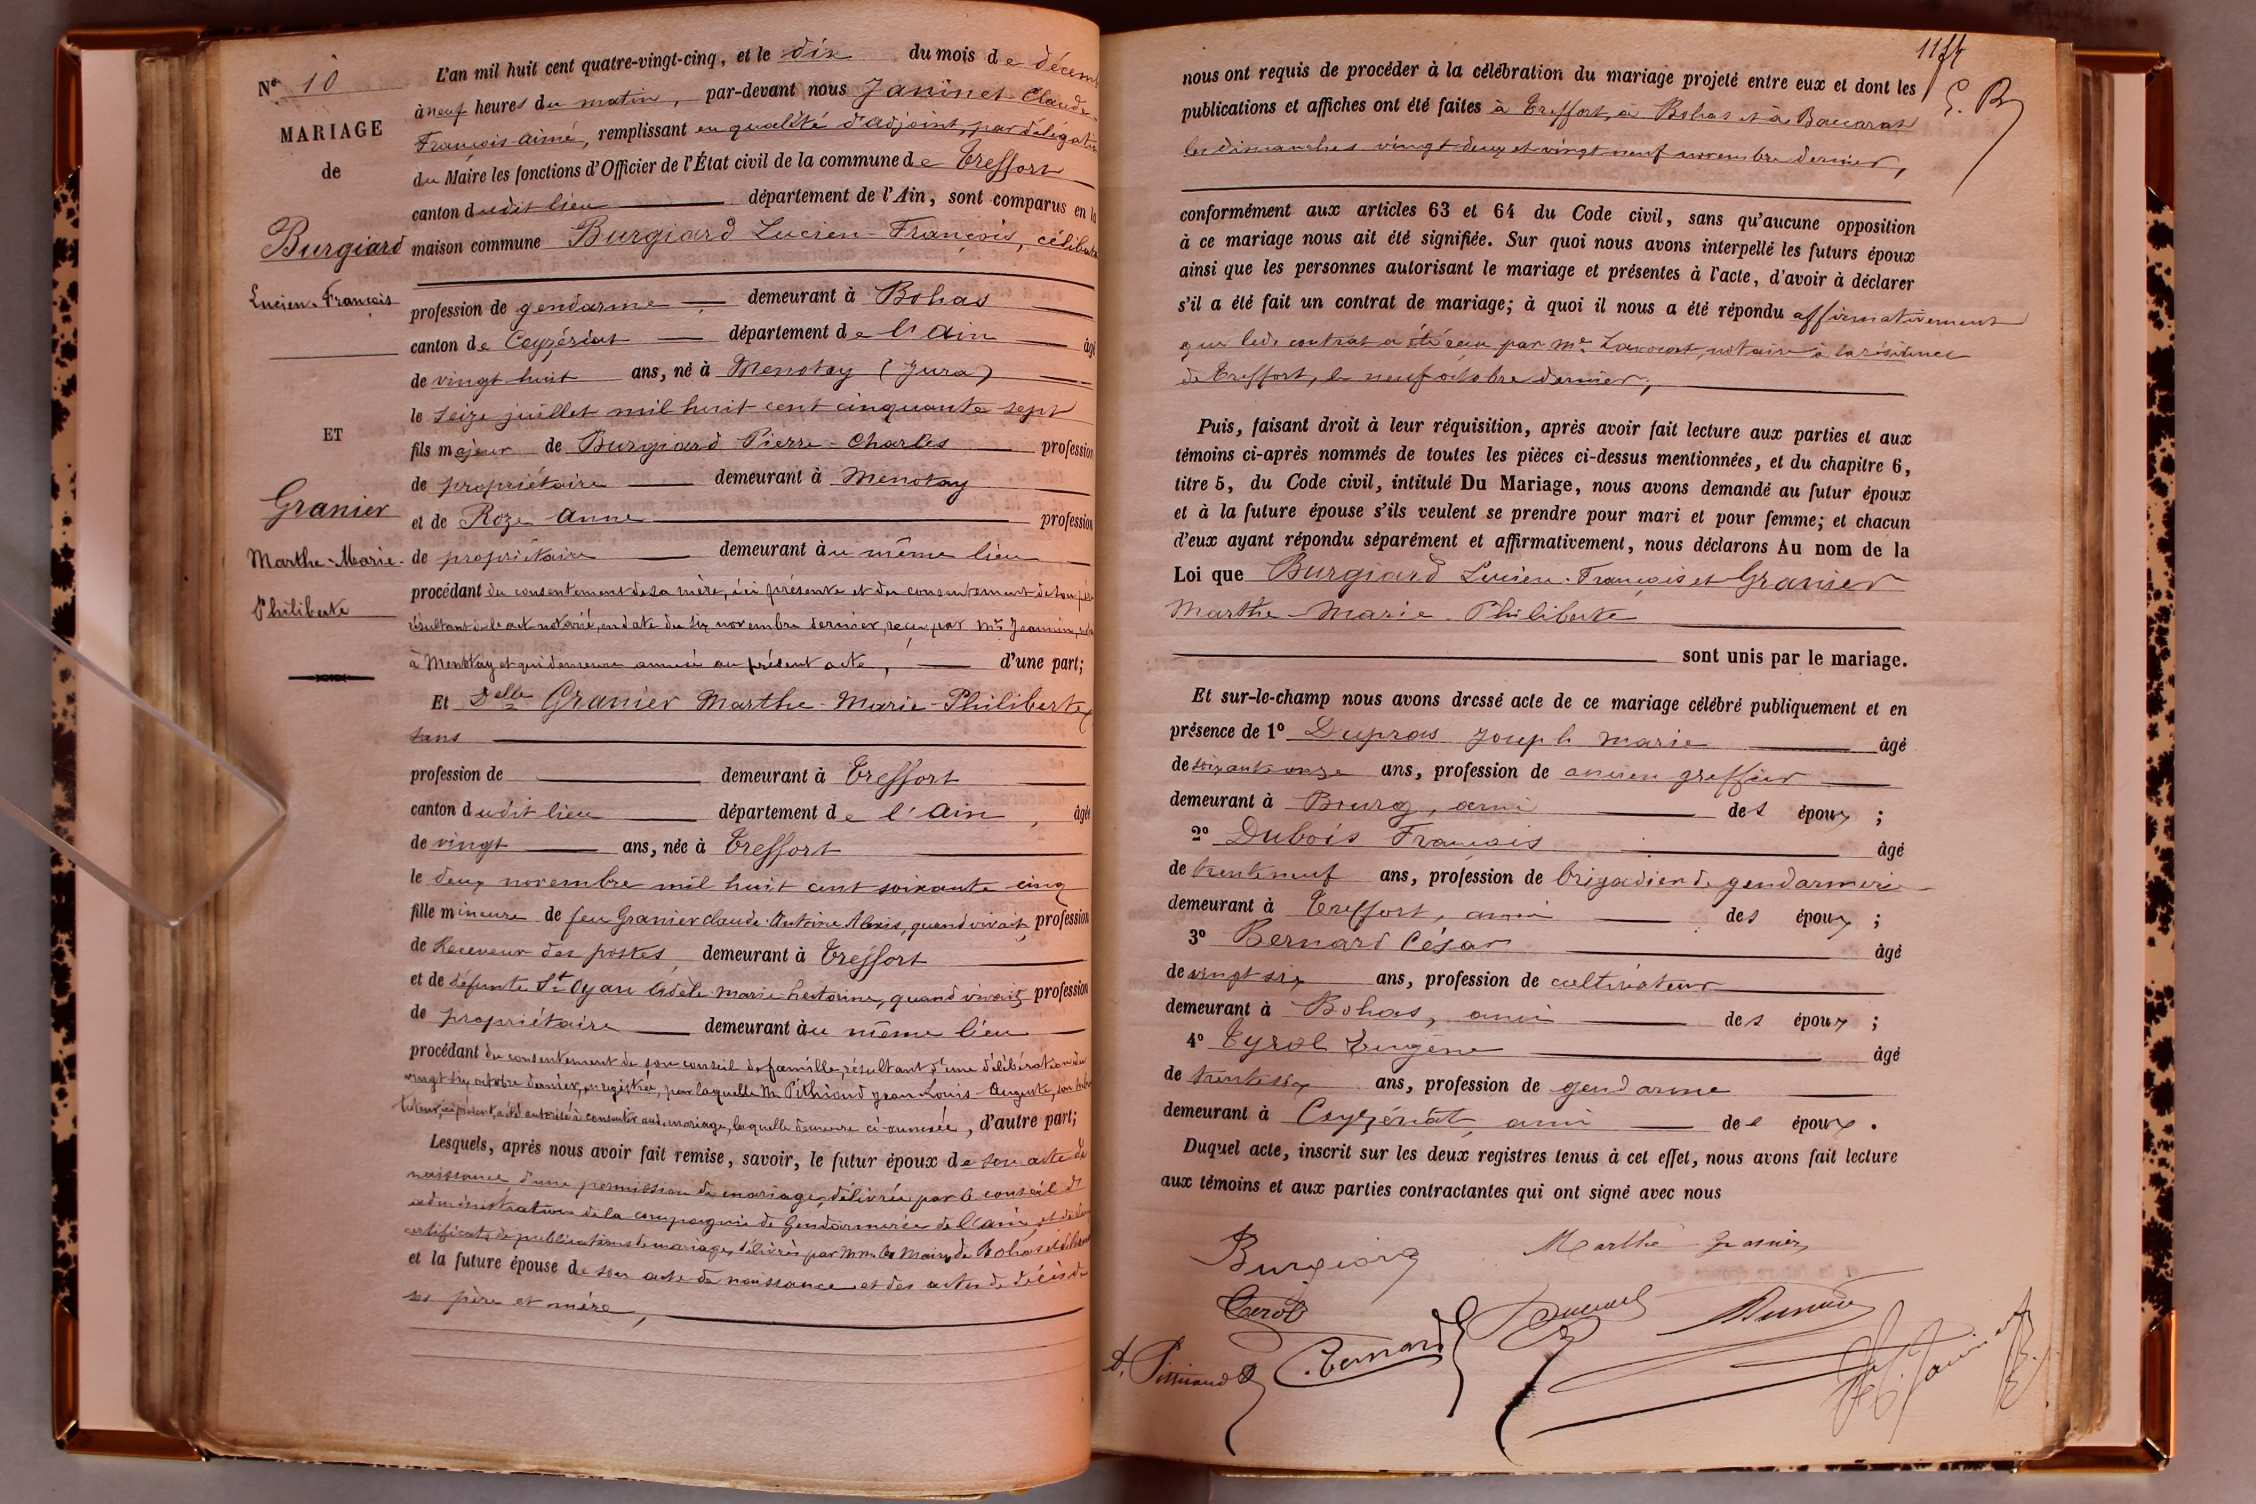 Nº 10
MARIAGE
de
Burgiard
Lucien-François
ET
Granier
Marthe-Marie-
Philiberte
L'an mil huit cent quatre-vingt-cinq, et le dix du mois de décembre
à neuf heures du matin, par-devant nous Janinet Claude-
François-Aimé, remplissant en qualité d'adjoint, par délégation
du Maire les fonctions d'Officier de l'État civil de la commune de Treffort
canton dudit lieu département de l'Ain, sont comparus en la
maison commune Burgiard Lucien-François, célibataire
profession de gendarme demeurant à Bohas
canton de Ceyzériat département de l'Ain âgé
de vingt huit ans, né à Menotay (Jura)
le seize juillet mil huit cent cinquante sept
fils majeur de Burgiard Pierre-Charles profession
de propriétaire demeurant à Menotay
et de Roze Anne profession
de propriétaire demeurant au même lieu
procédant du consentement de sa mère, ici présente et du consentement de son père
résultant de acte notarié, en date du six novembre dernier, reçu par Me Jeannin,
à Menotay et qui demeure annexé au présent acte, d'une part;
Et Delle Granier Marthe-Marie-Philiberte,
sans
profession de demeurant à Treffort
canton dudit lieu département de l'Ain, âgée
de vingt ans, née à Treffort
le deux novembre mil huit cent soixante cinq
fille mineure de feu Granier Claude-Antoine Alexis, quand vivait, profession
de Receveur des postes, demeurant à Treffort
et de défunte St Oyan Adèle-Marie-Victorine, quand vivait profession
de propriétaire demeurant au même lieu
procédant du consentement de son conseil de famille, résultant d'une délibération du
vingt six octobre dernier, enregistrée, par laquelle M. Pithioud Jean-Louis-Auguste, son
tuteur, ici présent, a été autorisé à consentir aud. mariage, laquelle demeure ci-annexée, d'autre part;
Lesquels, après nous avoir fait remise, savoir, le futur époux de son acte de
naissance d'une permission de mariage, délivrée par le conseil d'
administration de la compagnie de Gendarmerie de l'Ain, et de
certificats de publications de mariage, délivrés par MM. les Maires de Bohas et de
et la future épouse de son acte de naissance et des actes de décès de
ses père et mère,
1154
E. B
nous ont requis de procéder à la célébration du mariage projeté entre eux et dont les
publications et affiches ont été faites à Treffort, à Bohas et à Baccarat
les dimanches vingt-deux et vingt neuf novembre dernier,
conformément aux articles 63 et 64 du Code civil, sans qu'aucune opposition
à ce mariage nous ait été signifiée. Sur quoi nous avons interpellé les futurs époux
ainsi que les personnes autorisant le mariage et présentes à l'acte, d'avoir à déclarer
s'il a été fait un contrat de mariage; à quoi il nous a été répondu affirmativement
que led. contrat a été reçu par Me notaire à la résidence
de Treffort, le neuf octobre dernier;
Puis, faisant droit à leur réquisition, après avoir fait lecture aux parties et aux
témoins ci-après nommés de toutes les pièces ci-dessus mentionnées, et du chapitre 6,
titre 5, du Code civil, intitulé Du Mariage, nous avons demandé au futur époux
et à la future épouse s'ils veulent se prendre pour mari et pour femme; et chacun
d'eux ayant répondu séparément et affirmativement, nous déclarons Au nom de la
Loi que Burgiard Lucien-François et Granier
Marthe-Marie-Philiberte
sont unis par le mariage.
Et sur-le-champ nous avons dressé acte de ce mariage célébré publiquement et en
présence de 1º Dupras Joseph Marie âgé
de soixante onze ans, profession de ancien greffier
demeurant à Bourg, ami des époux;
2º Dubois François âgé
de trente neuf ans, profession de brigadier de gendarmerie
demeurant à Treffort, ami des époux;
3º Bernard César âgé
de vingt six ans, profession de cultivateur
demeurant à Bohas, ami des époux;
4º Tyrol Eugène âgé
de trente six ans, profession de gendarme
demeurant à Ceyzériat, ami des époux.
Duquel acte, inscrit sur les deux registres tenus à cet effet, nous avons fait lecture
aux témoins et aux parties contractantes qui ont signé avec nous
Burgiard Marthe Granier
C. Bernard